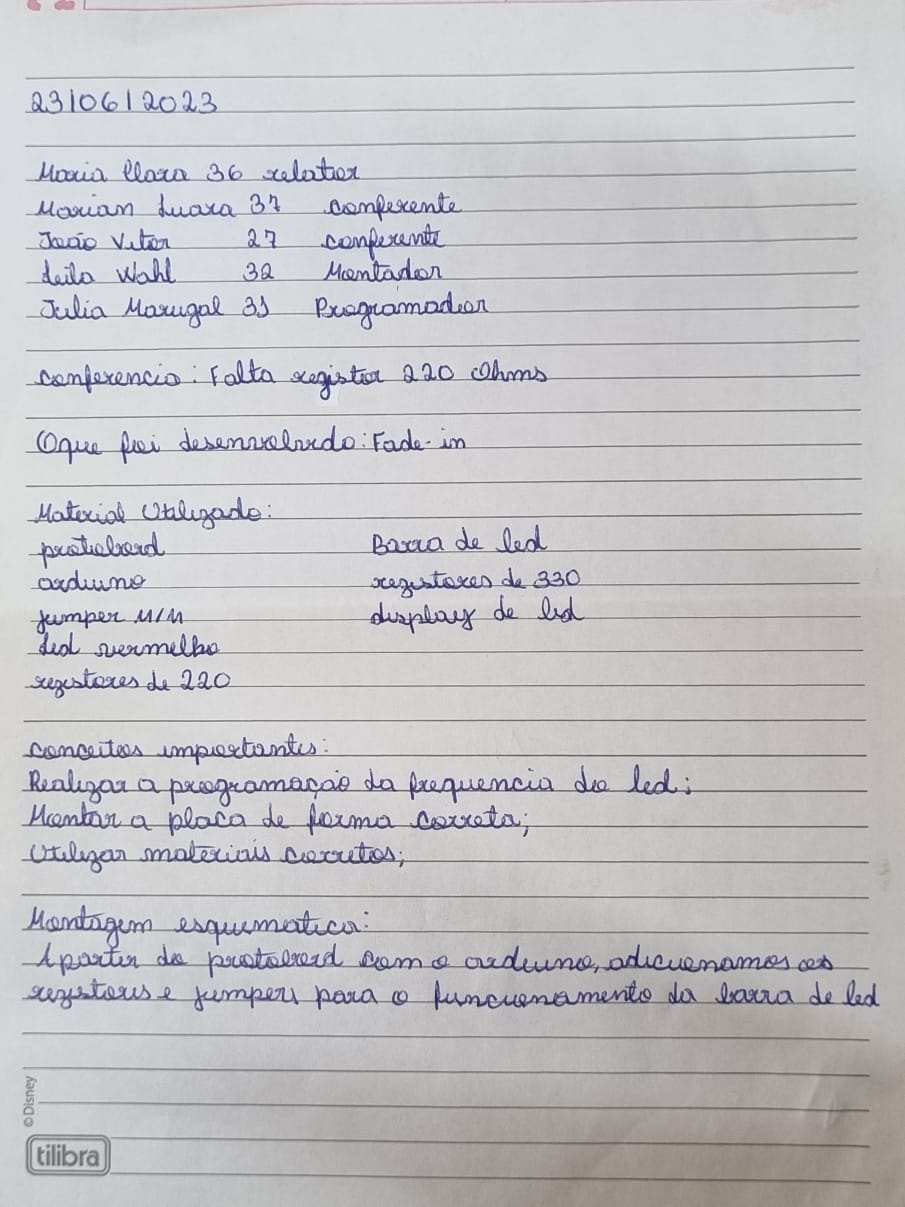 23/06/2023
Maria Clara 36 relator
Marian Luara 37 conferente
João Vitor 27 conferente
Leila Wahl 32 Montador
Julia Marugal 31 Programador
conferencio: Falta registor 220 Ohms
Oque foi desenvolvido: Fade-in
Material Utilizado:
protobord Barra de led
arduino rezistores de 330
jumper M/M display de led
Led vermelho
rezistores de 220
conceitos importantes:
Realizar a programação da frequencia do led;
Montar a placa de forma correta;
Utilizar materiais corretos;
Montagem esquematica:
Apartir do protobord com o arduino, adicionamos os
rezistores e jumpers para o funcionamento da barra de led
©Disney
tilibra